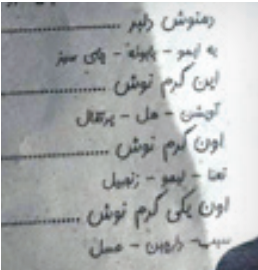 دمنوش دلبر ..........
به لیمو - بابونه - چای سبز
این گرم نوش ..............
آویشن - هل - پرتقال
اون گرم نوش ..............
نعنا - لیمو - زنجبیل
اون یکی گرم نوش ............
سیب - دارچین - عسل